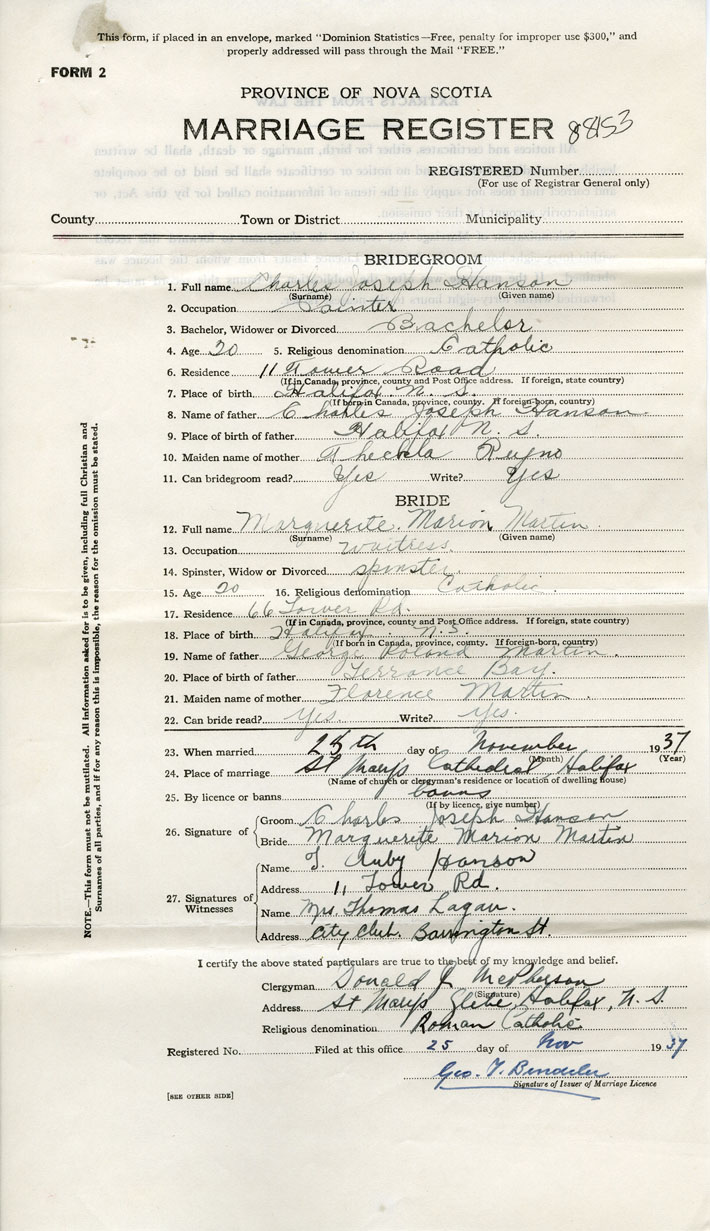 This form, if placed in an envelope, marked “Dominion Statistics—Free, penalty for improper use $300,” and
properly addressed will pass through the Mail “FREE.”
FORM 2
PROVINCE OF NOVA SCOTIA
MARRIAGE REGISTER 88153
REGISTERED Number
(For use of Registrar General only)
County Town or District Municipality
BRIDEGROOM
1. Full name Charles Joseph Hanson
(Surname) (Given name)
2. Occupation Painter
3. Bachelor, Widower or Divorced Bachelor
4. Age 20 5. Religious denomination Catholic
6. Residence 11 Tower Road
(If in Canada, province, county and Post Office address. If foreign, state country)
7. Place of birth Halifax N. S.
(If born in Canada, province, county. If foreign-born, country)
8. Name of father Charles Joseph Hanson
9. Place of birth of father Halifax N. S.
10. Maiden name of mother Theckla Reyno
11. Can bridegroom read? Yes Write? Yes
BRIDE
12. Full name Marguerite Marion Martin
(Surname) (Given name)
13. Occupation waitress
14. Spinster, Widow or Divorced spinster
15. Age 20 16. Religious denomination Catholic
17. Residence 66 Tower Rd.
(If in Canada, province, county and Post Office address. If foreign, state country)
18. Place of birth Halifax N.S.
(If born in Canada, province, county. If foreign-born, country)
19. Name of father George Roland Martin
20. Place of birth of father Terrance Bay.
21. Maiden name of mother Florence Martin
22. Can bride read? Yes. Write? yes.
23. When married 25th day of November 1937
(Month) (Year)
24. Place of marriage St Mary's Cathedral, Halifax
(Name of church or clergyman's residence or location of dwelling house)
25. By licence or banns banns
(If by licence, give number)
26. Signature of
Groom Charles Joseph Hanson
Bride Marguerite Marion Martin
27. Signatures of Witnesses
Name Ruby Hanson
Address 11 Tower Rd.
Name Mrs. Thomas Lagan.
Address City Club. Barrington St.
I certify the above stated particulars are true to the best of my knowledge and belief.
Clergyman Donald J. McPherson
(Signature)
Address St Mary's Glebe, Halifax, N. S.
Religious denomination Roman Catholic
Registered No. Filed at this office 25 day of Nov 1937
Geo. T.
Signature of Issuer of Marriage Licence
[SEE OTHER SIDE]
NOTE.—This form must not be mutilated. All information asked for is to be given, including full Christian and
Surnames of all parties, and if for any reason this is impossible, the reason for the omission must be stated.